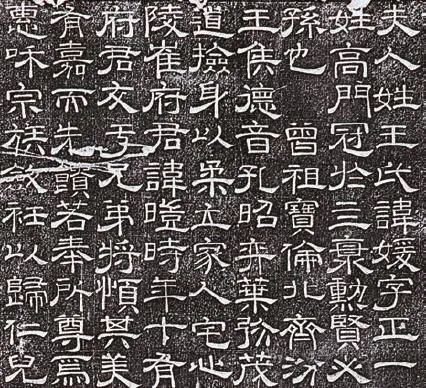 夫人姓王氏諱媛字正一
姓高門冠於三勳賢必
孫也　曾祖寶倫北齊汾
王雋德音孔昭弈葉弥茂
道撿身以柔立家人宅心
陵崔府君諱暟時年十有
府君友于兄弟將慎其美
有嘉而先若奉所尊焉
惠咊宗族斂衽以歸仁兒